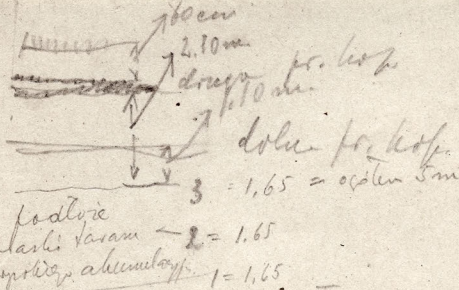 60 cm
2.10 m.
druga pr. kop.
1.10 m.
dolna pr. kop.
3 = 1.65 = ogółem 5 m
podłoże
2 = 1.65
akumulacyj
1 = 1.65